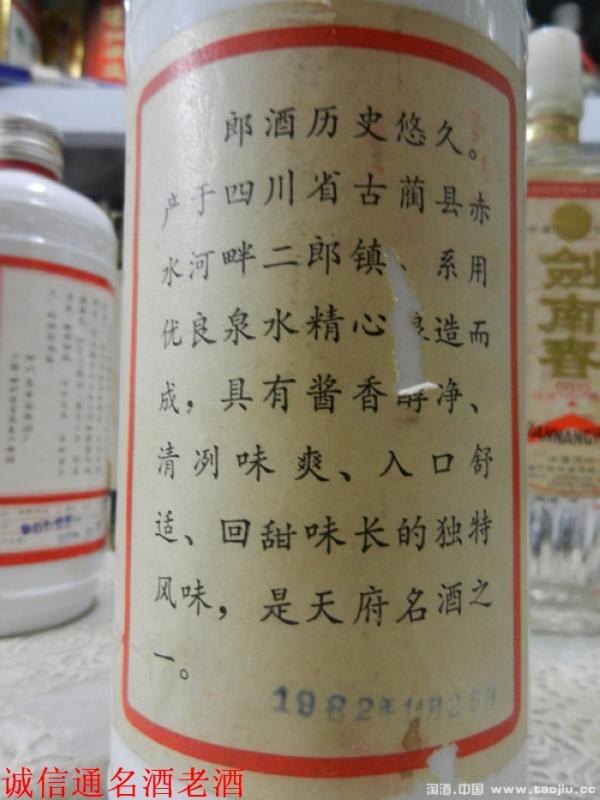 郎酒历史悠久。
产于四川省古蔺县赤
水河畔二郎镇、系用
优良泉水精心 造而
成，具有酱香醇净、
清冽味爽、入口舒
适、回甜味长的独特
风味，是天府名酒之
一。
1982年11月25日
劍南春
诚信通名酒老酒
淘酒.中国 www.taojiu.cc